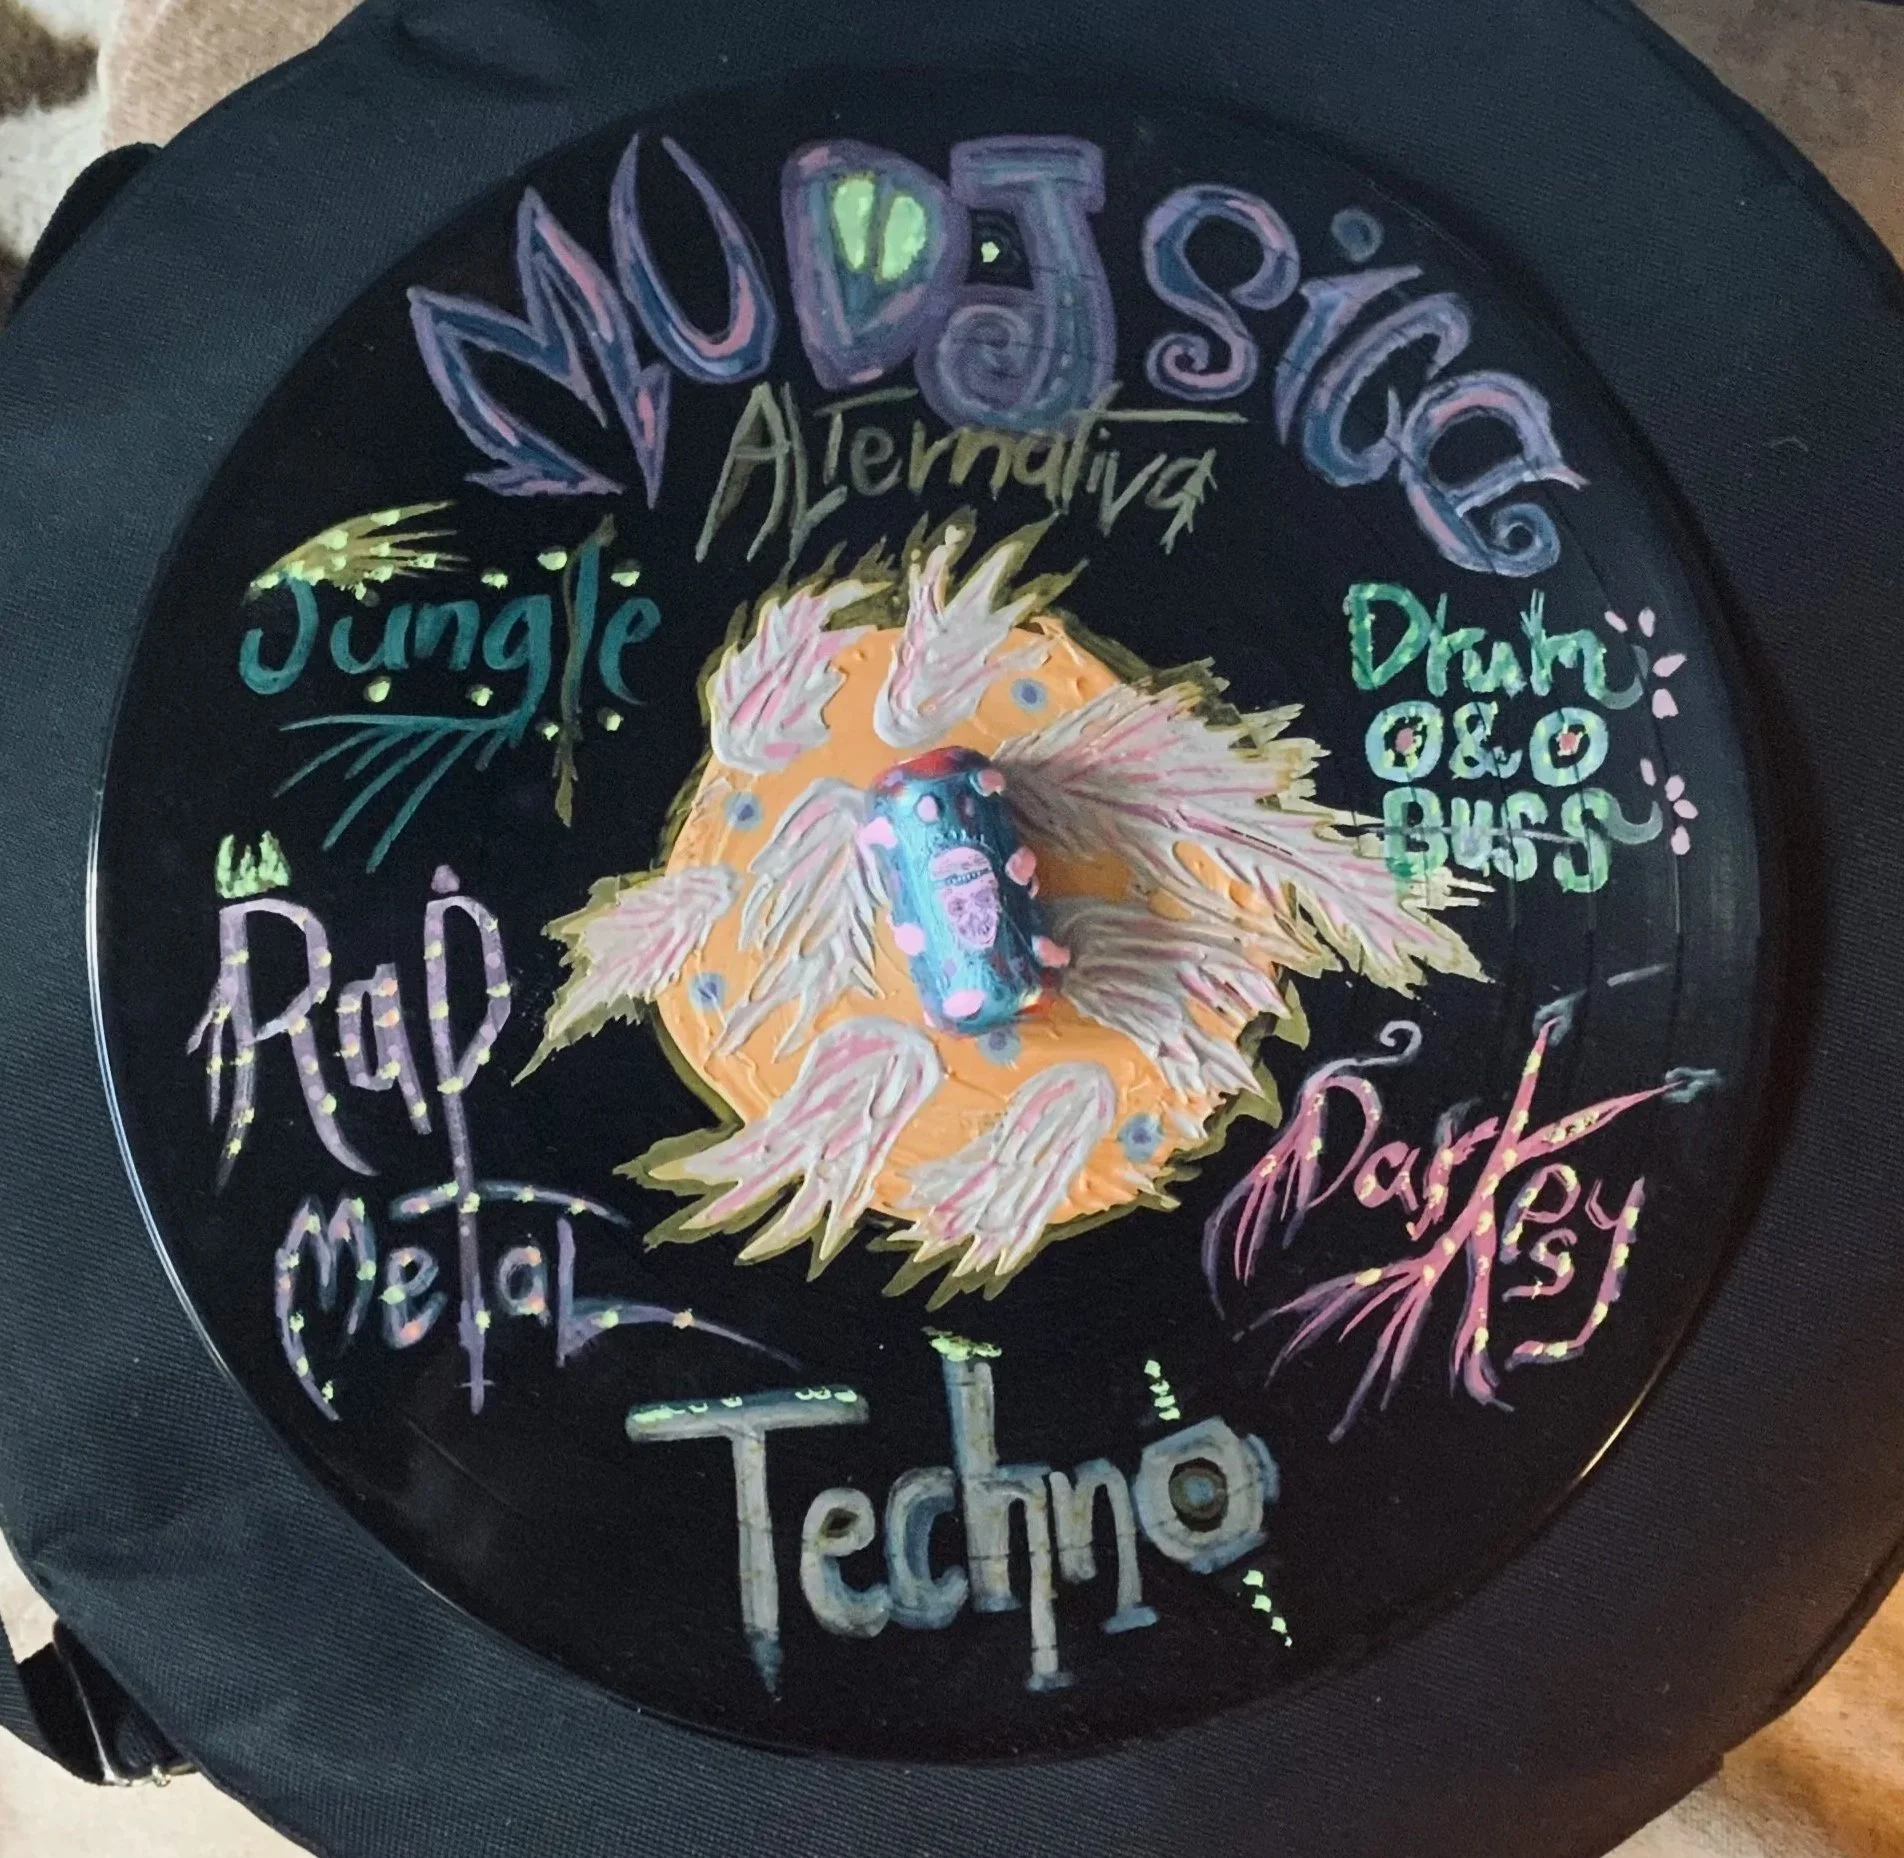 MUDJSica
Alternativa
Jungle
Drum
&
Buss
Rap
Metal
Darkpsy
Techno